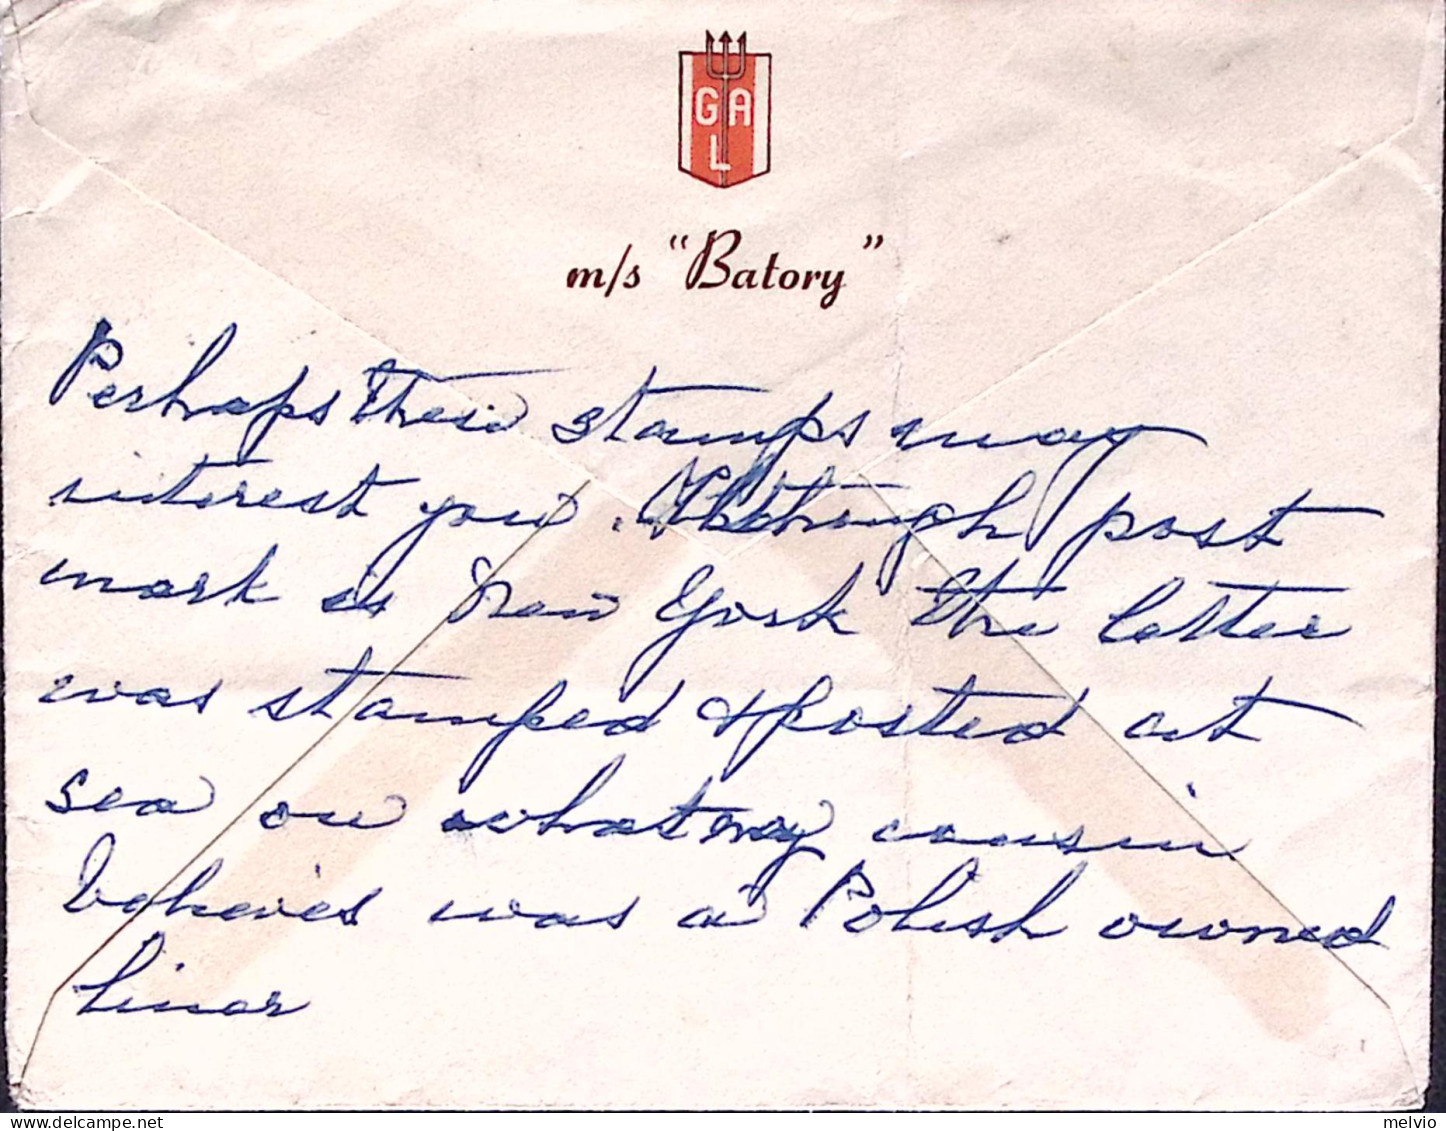 GAL
m/s "Batory"
Perhaps these stamps may
interest you. Although post
mark is New York the letter
was stamped & posted at
sea on what my cousin
believes was a Polish owned
liner
melvio